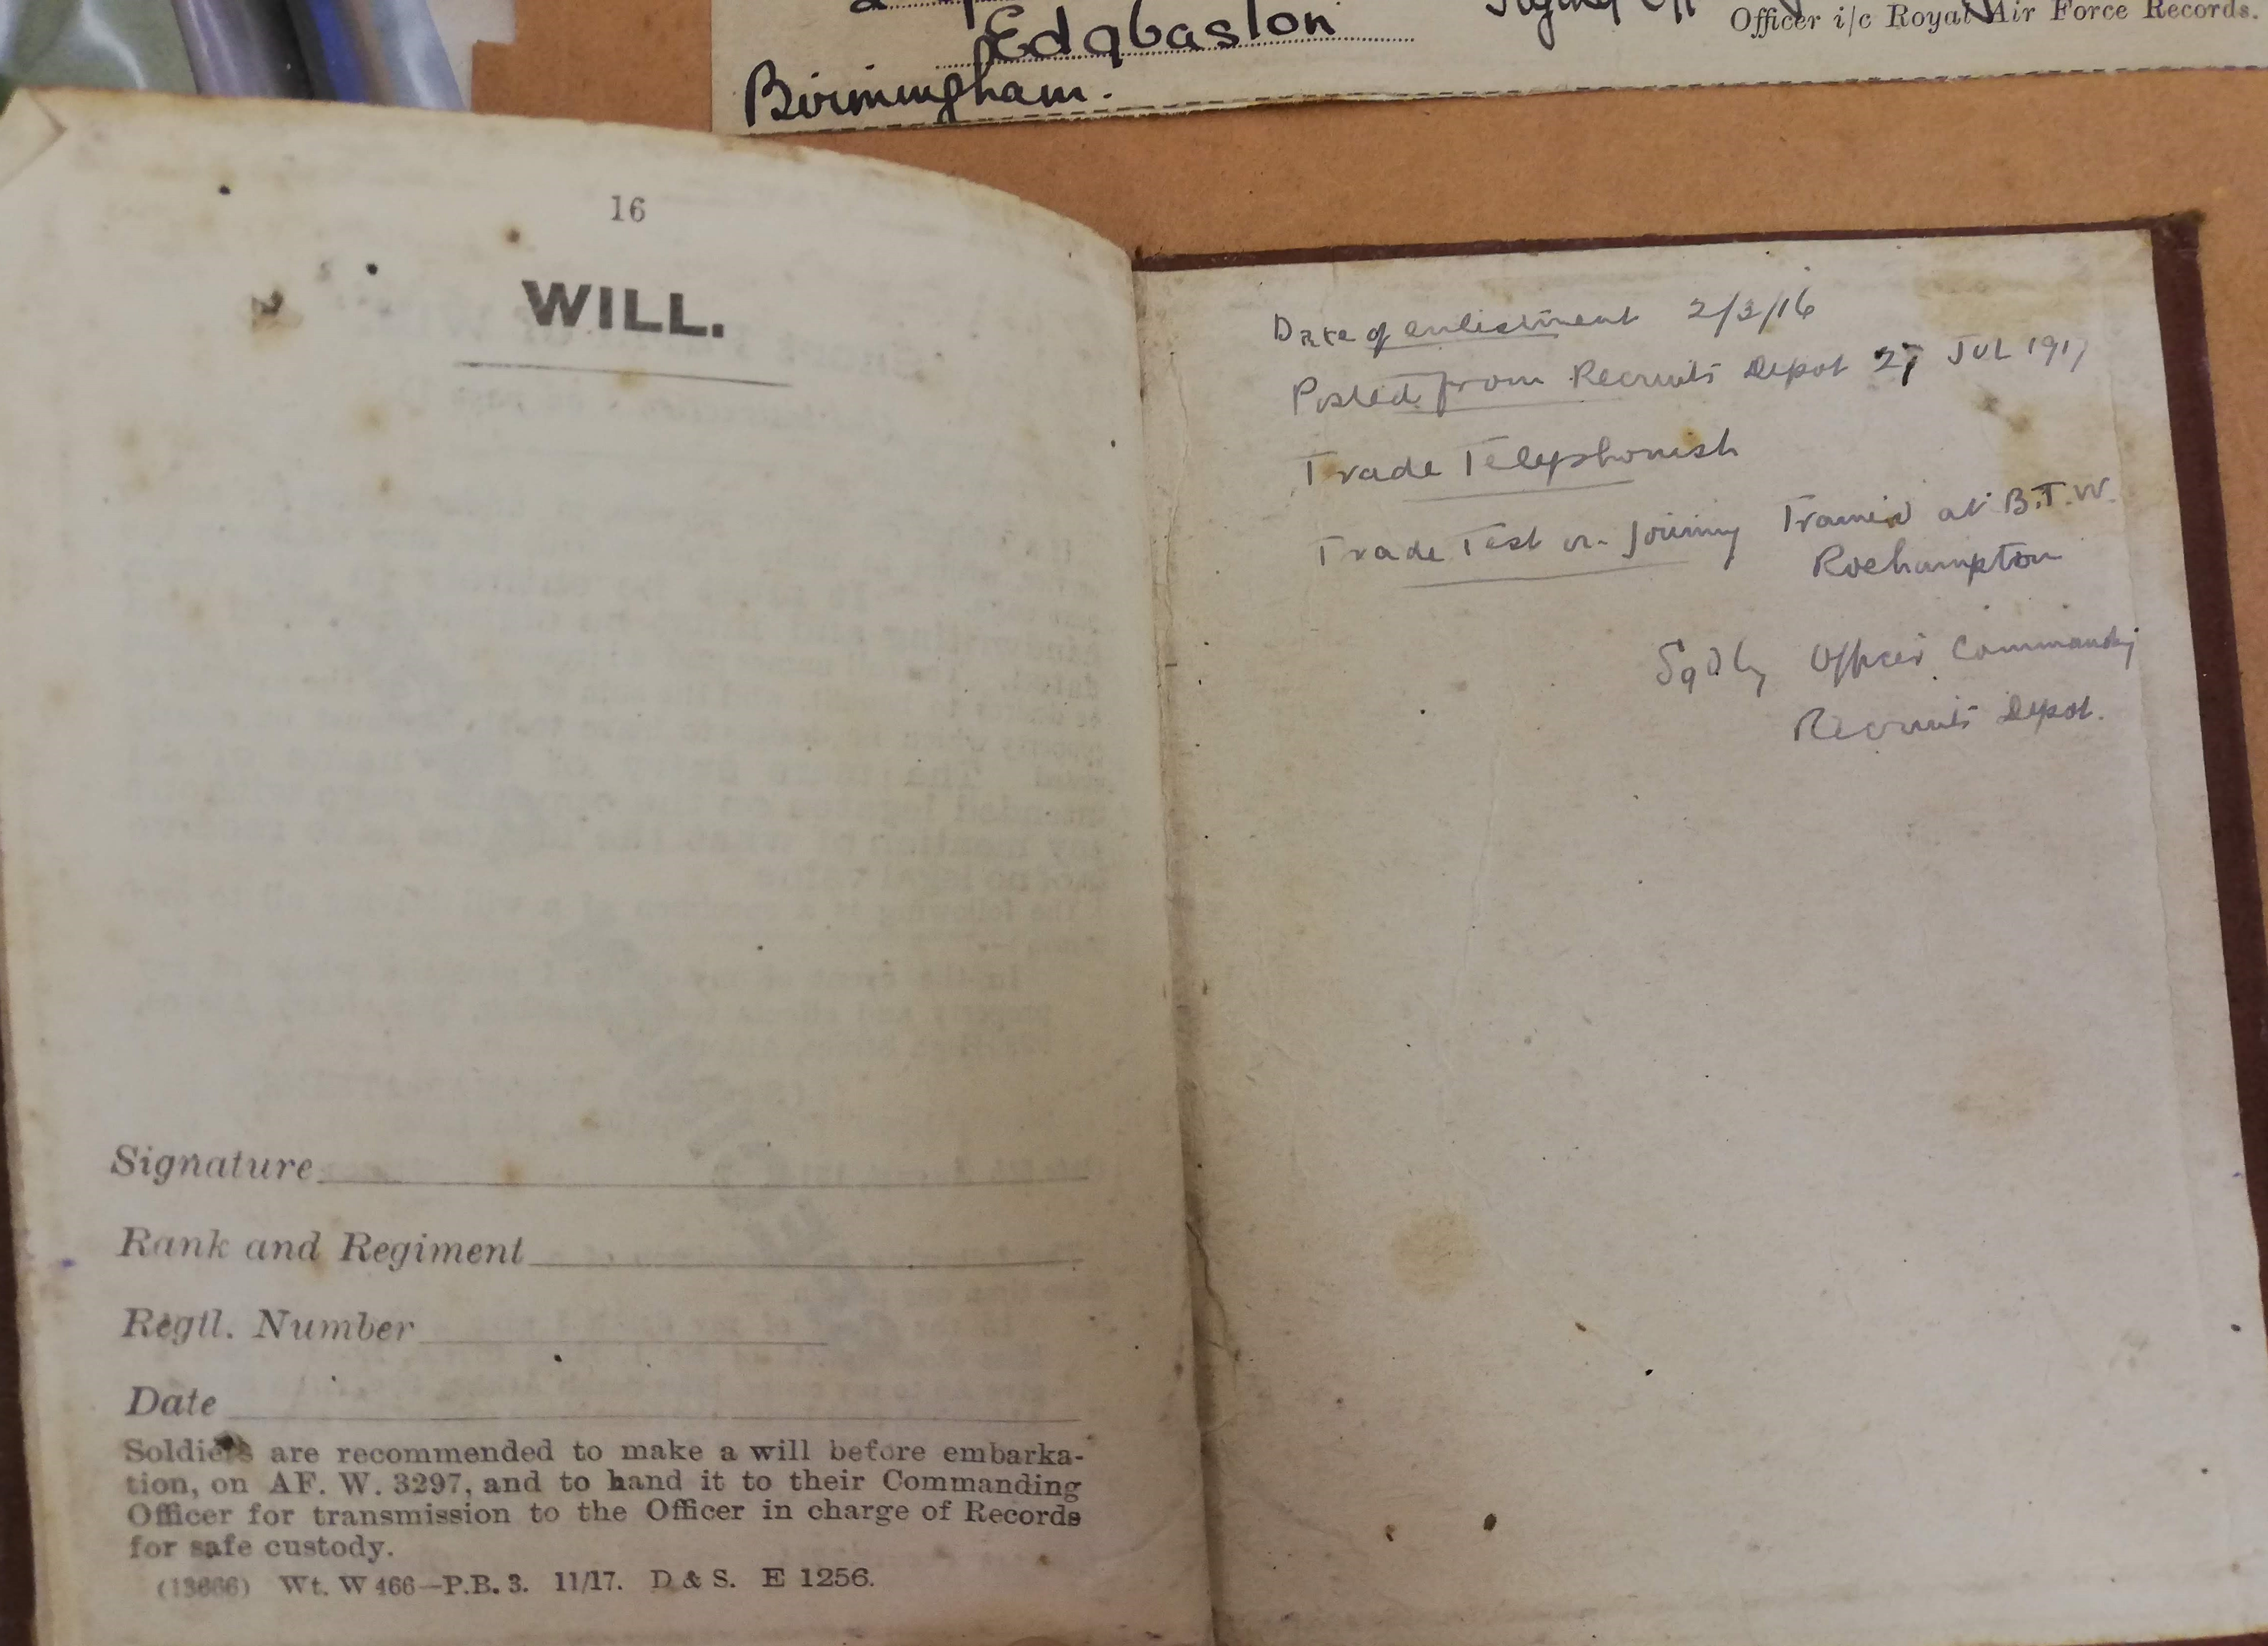 Edgbaston
Birmingham.
Officer i/c Royal Air Force Records.
16
WILL.
Signature
Rank and Regiment
Regtl. Number
Date
Soldiers are recommended to make a will before embarka-
tion, on AF. W. 3297, and to hand it to their Commanding
Officer for transmission to the Officer in charge of Records
for safe custody.
(13666) Wt. W 466—P.B. 3. 11/17. D & S. E 1256.
Date of enlistment 2/3/16
Posted from Recruits Depot 27 JUL 1917
Trade Telephonist
Trade Test on Joining Trained at B.T.W.
Roehampton
Officer Commanding
Recruits Depot.